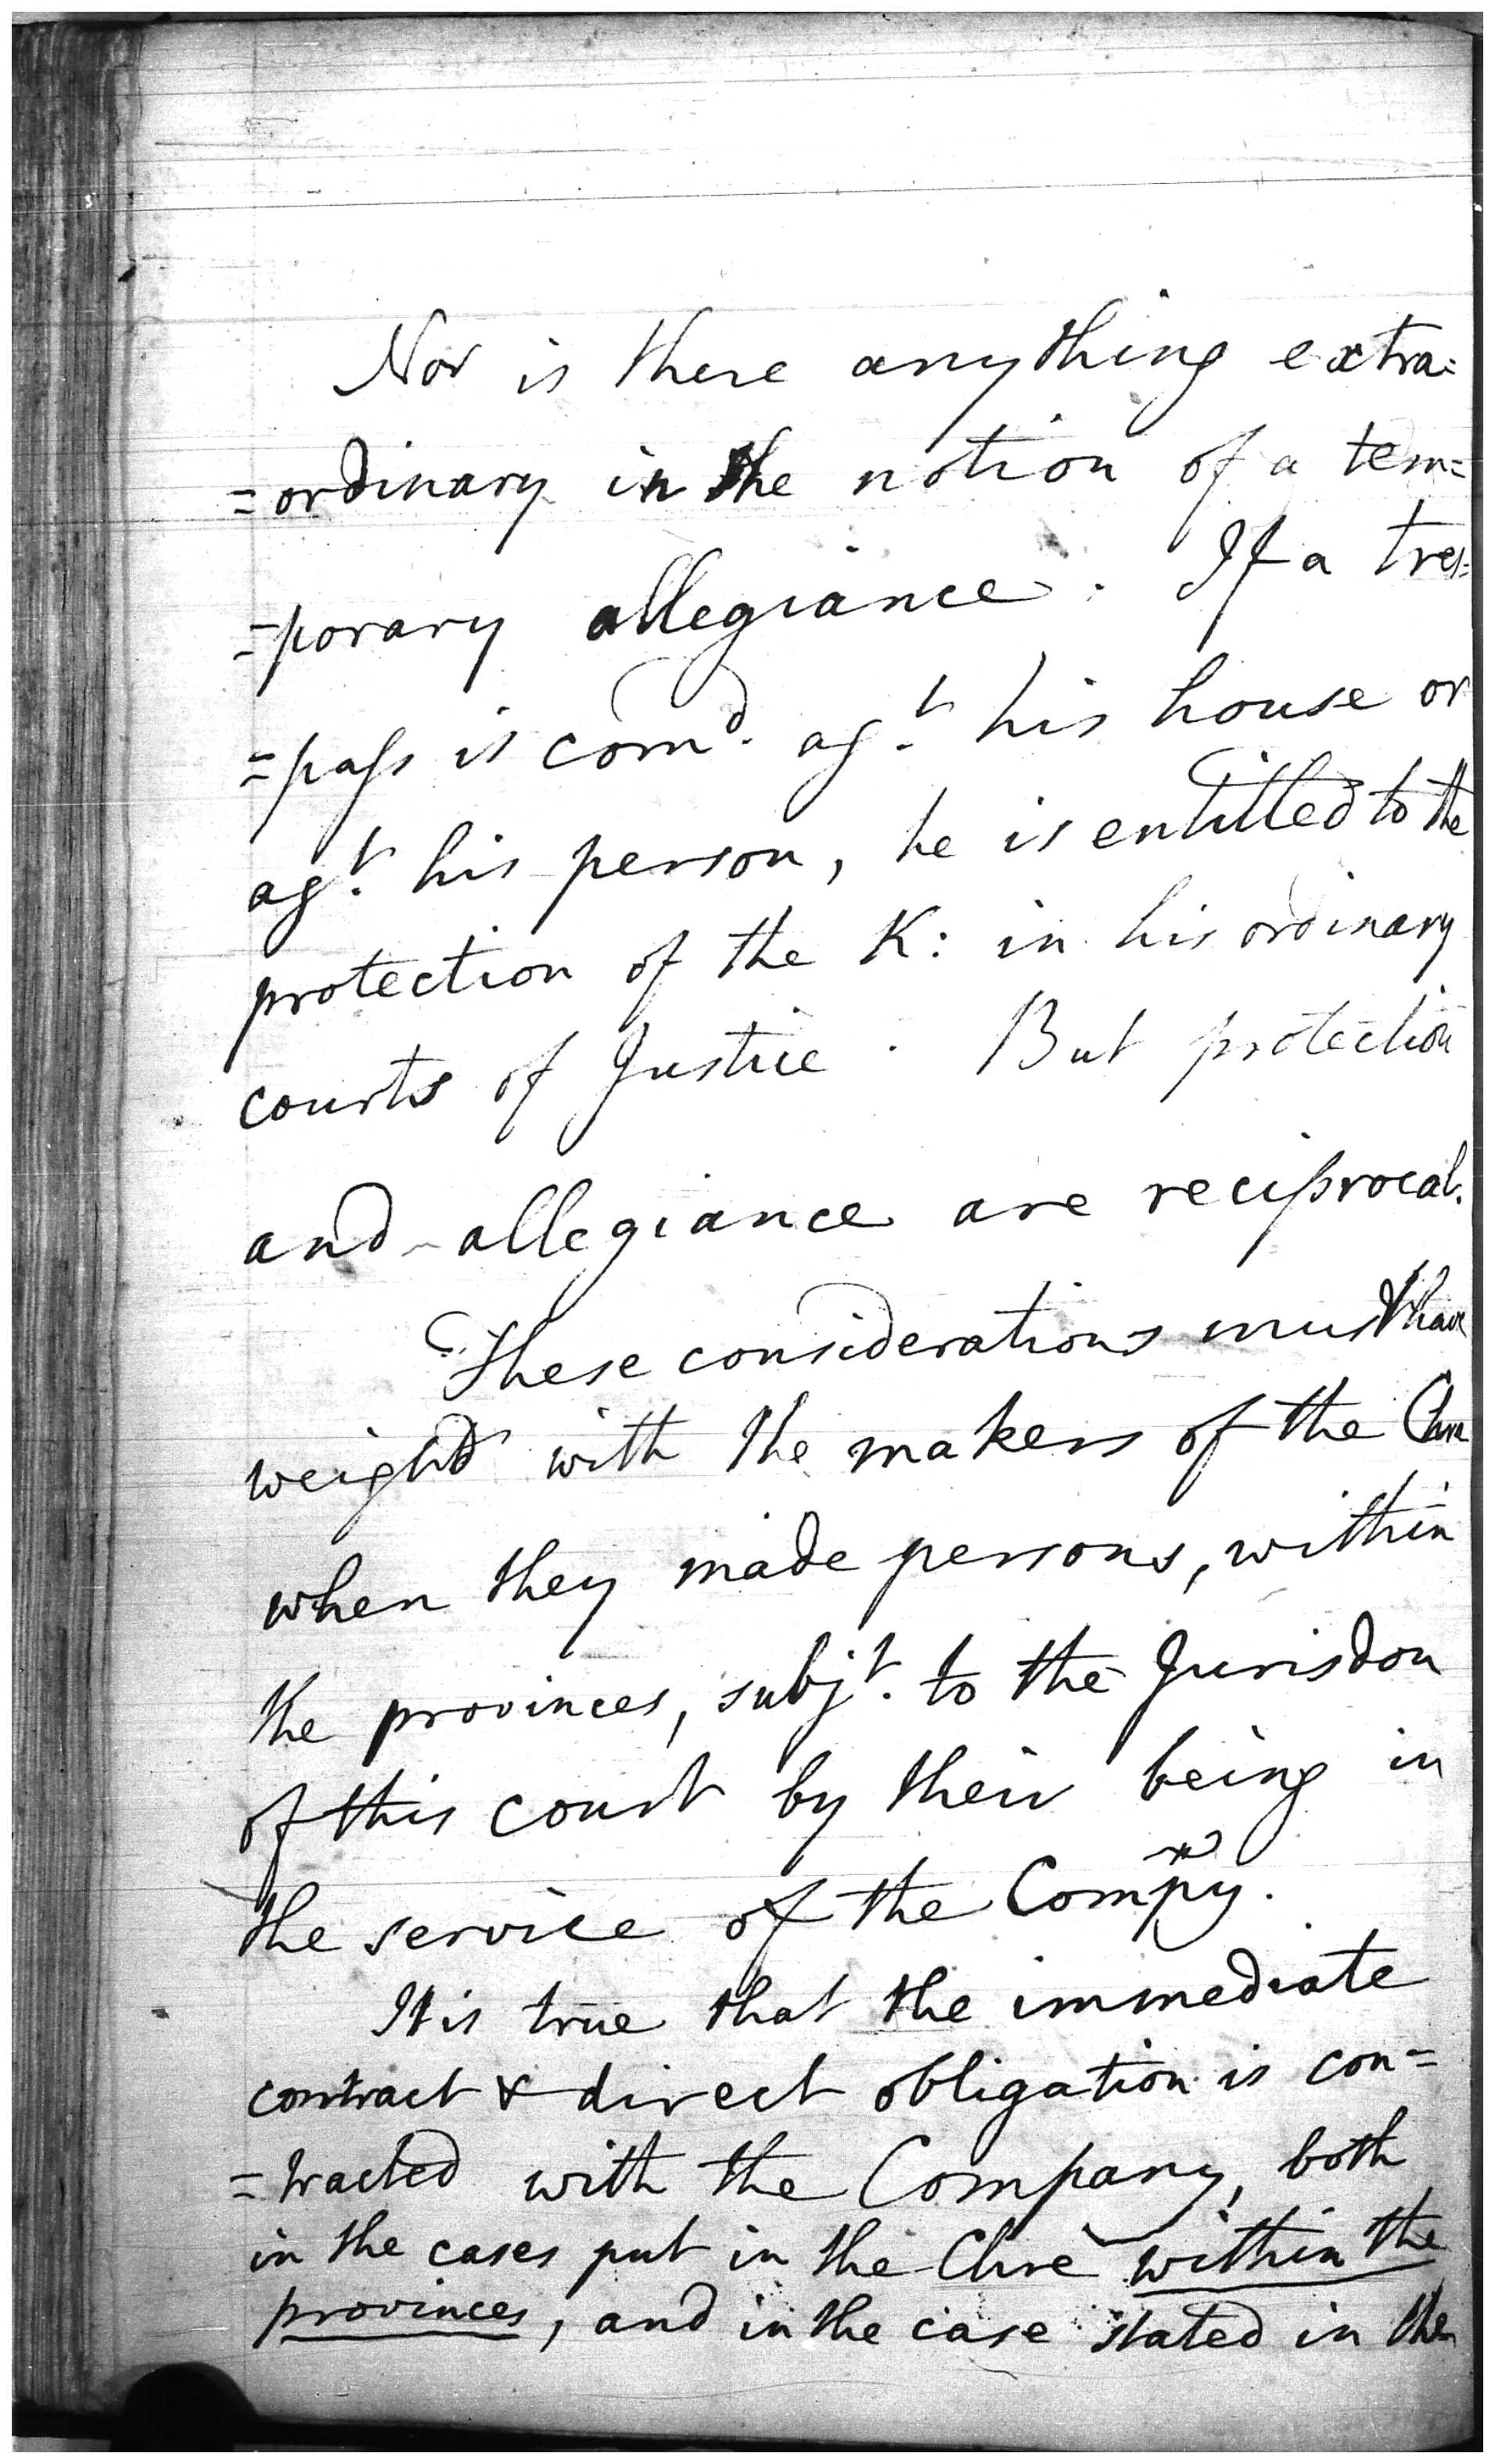 Nor is there anything extra=
=ordinary in the notion of a tem=
=porary allegiance. If a tres=
=pass is com̄d. agt. his house or
agt. his person, he is entitled to the
protection of the K: in his ordinary
courts of Justice. But protection
and allegiance are reciprocal.
These considerations must have
weighd with the makers of the Chre
when they made persons, within
the provinces, subjt. to the Jurisdon
of this court by their being in
the service of the Compy.
It is true that the immediate
contract & direct obligation is con=
=tracted with the Company, both
in the cases put in the Chre within the
provinces, and in the case stated in the